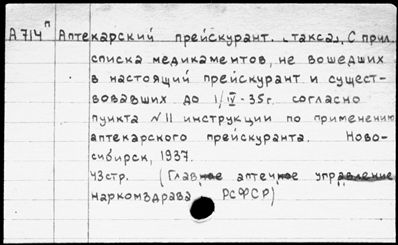 А714п Аптекарский прейскурант. (такса). С прил.
списка медикаментов, не вошедших
в настоящий прейскурант и сущест-
вовавших до 1/IV-35г. согласно
пункта №11 инструкции по применению
аптекарского прейскуранта. Ново-
сибирск, 1937.
43стр. (Главное аптечное управление
наркомздрава РСФСР)